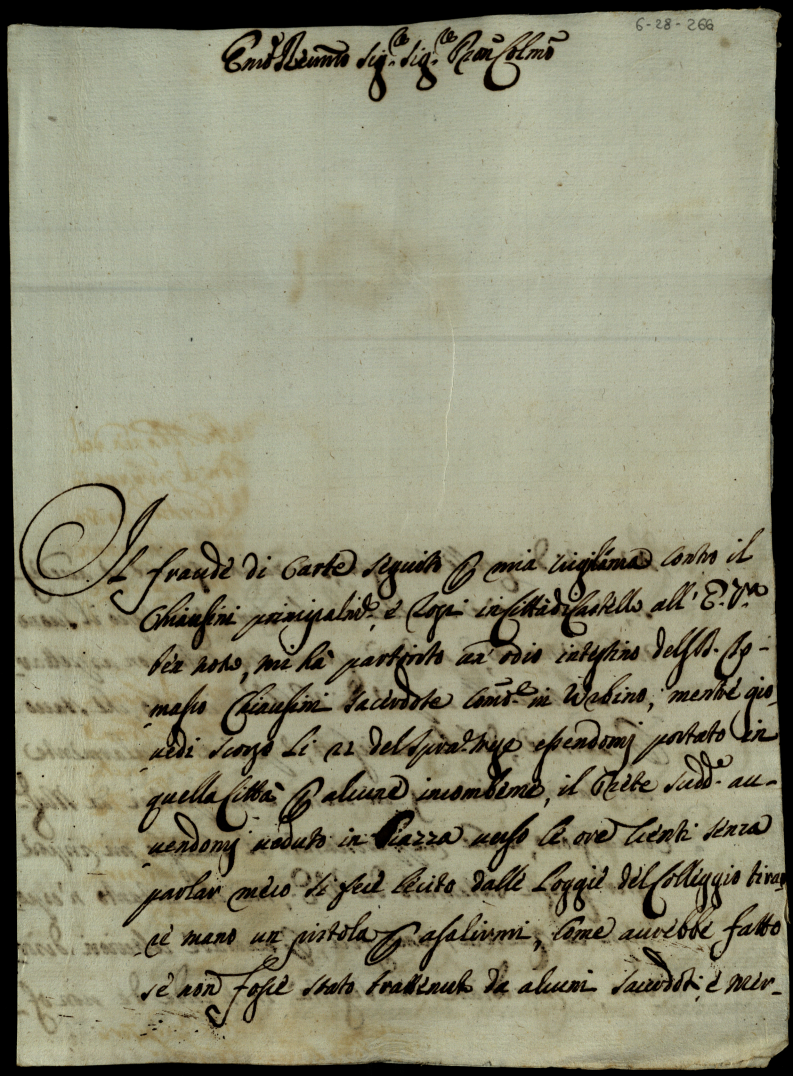 6-28-266
Emo Reumo Sig.re Sig.re Pron Colmo
Il fraude di Carte seguito p mia uigilanza contro il
Chiausini principalmte, e Logi in Città di Castello all' E. Vra
ben note, mi hà partorito un' odio intestino del
masso Chiausini Sacerdote in Urbino, mentre gio-
uedi scorso li 22 del essendomj portato in
quella Città p alcune incombenze, il Prete sudd.o au-
uendomj ueduto in Piazza uerso le ore uenti senza
parlar meco si fece lecito dalle Loggie del Colleggio tira-
re mano un pistola p asalirmi, come aurebbe fatto
se non fosse stato trattenuto da alcuni Sacerdoti, e mer-